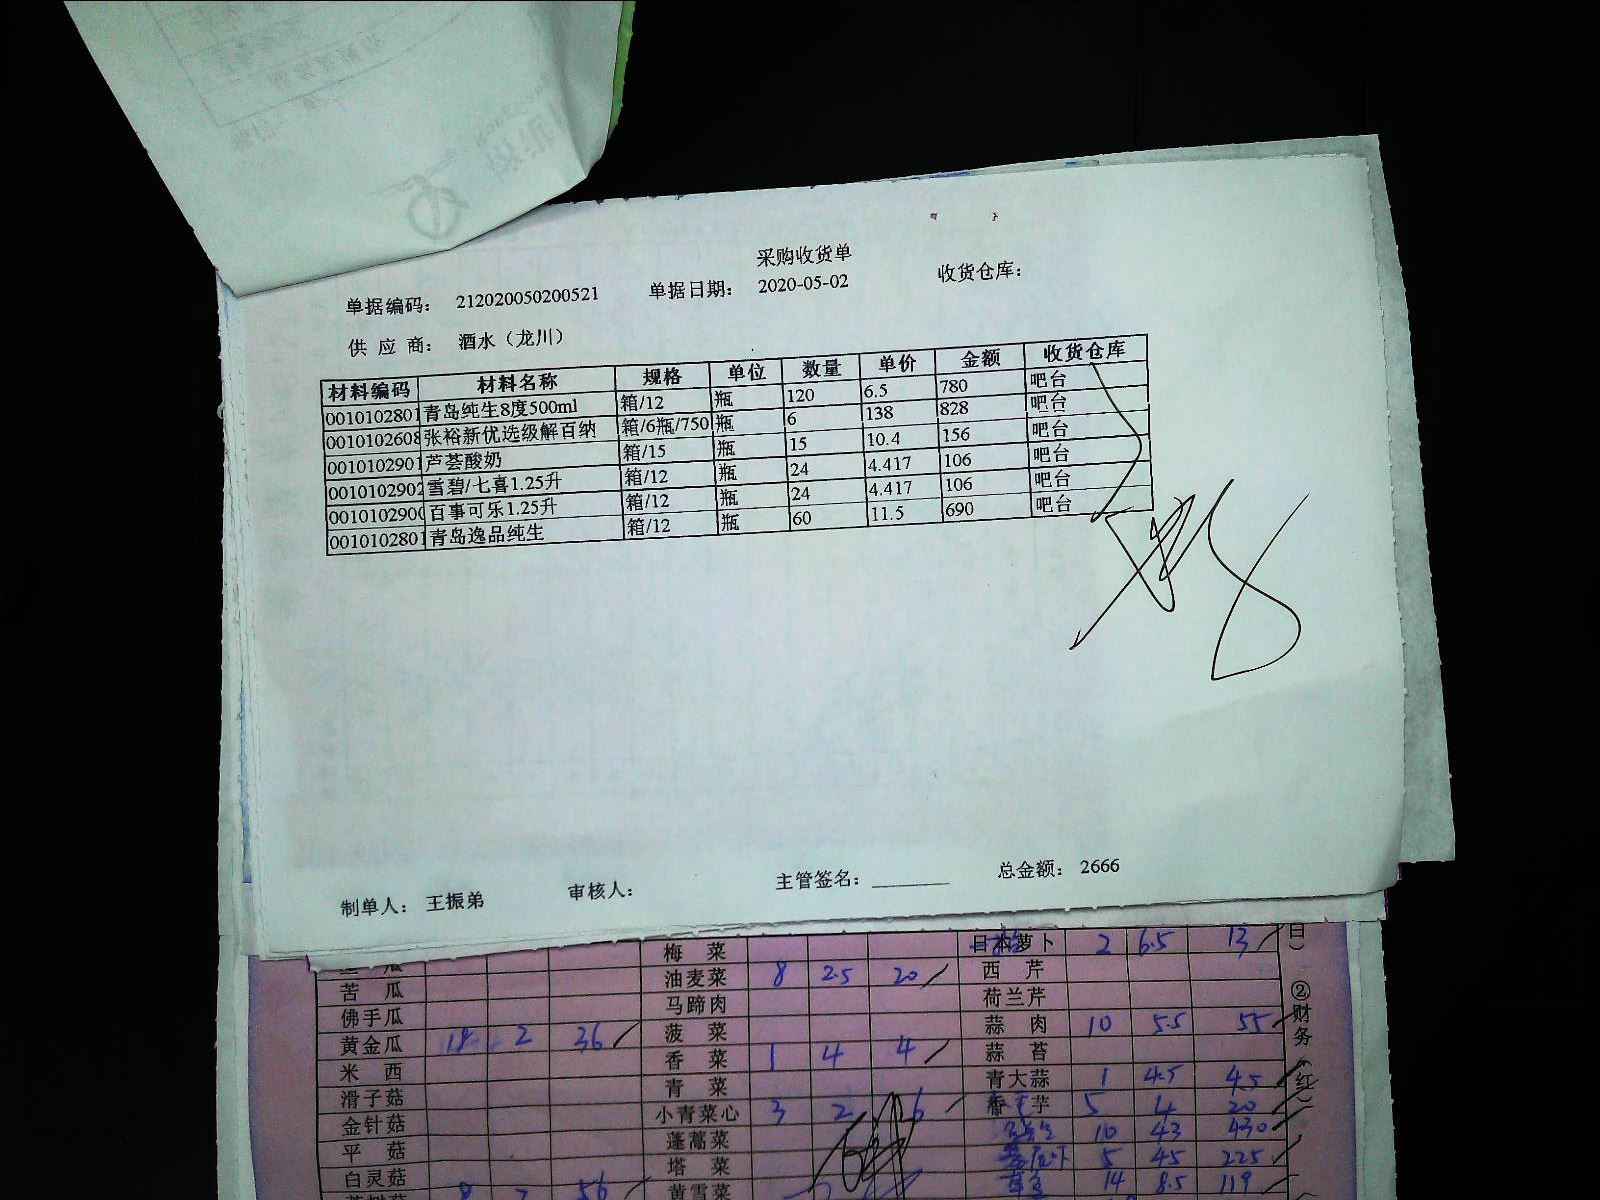 采购收货单
单据编码： 212020050200521 单据日期： 2020-05-02 收货仓库：
供 应 商： 酒水（龙川）
材料编码 材料名称 规格 单位 数量 单价 金额 收货仓库
0010102801 青岛纯生8度500ml 箱/12 瓶 120 6.5 780 吧台
0010102608 张裕新优选级解百纳 箱/6瓶/750 瓶 6 138 828 吧台
0010102901 芦荟酸奶 箱/15 瓶 15 10.4 156 吧台
0010102902 雪碧/七喜1.25升 箱/12 瓶 24 4.417 106 吧台
0010102900 百事可乐1.25升 箱/12 瓶 24 4.417 106 吧台
0010102801 青岛逸品纯生 箱/12 瓶 60 11.5 690 吧台
制单人： 王振弟 审核人： 主管签名： 总金额： 2666
梅 菜 日本萝卜 2 6.5 13
苦 瓜 油麦菜 8 2.5 20 西 芹
佛手瓜 马蹄肉 荷兰芹
黄金瓜 18 2 36 菠 菜 蒜 肉 10 5.5 55
米 西 香 菜 1 4 4 蒜 苔
滑子菇 青 菜 青大蒜 1 4.5 4.5
金针菇 小青菜心 3 2 6 芋 5 4 20
平 菇 蓬蒿菜 10 43 430
白灵菇 塔 菜 5 45 225
8 7 56 黄雪菜 14 8.5 119
②财务（红）